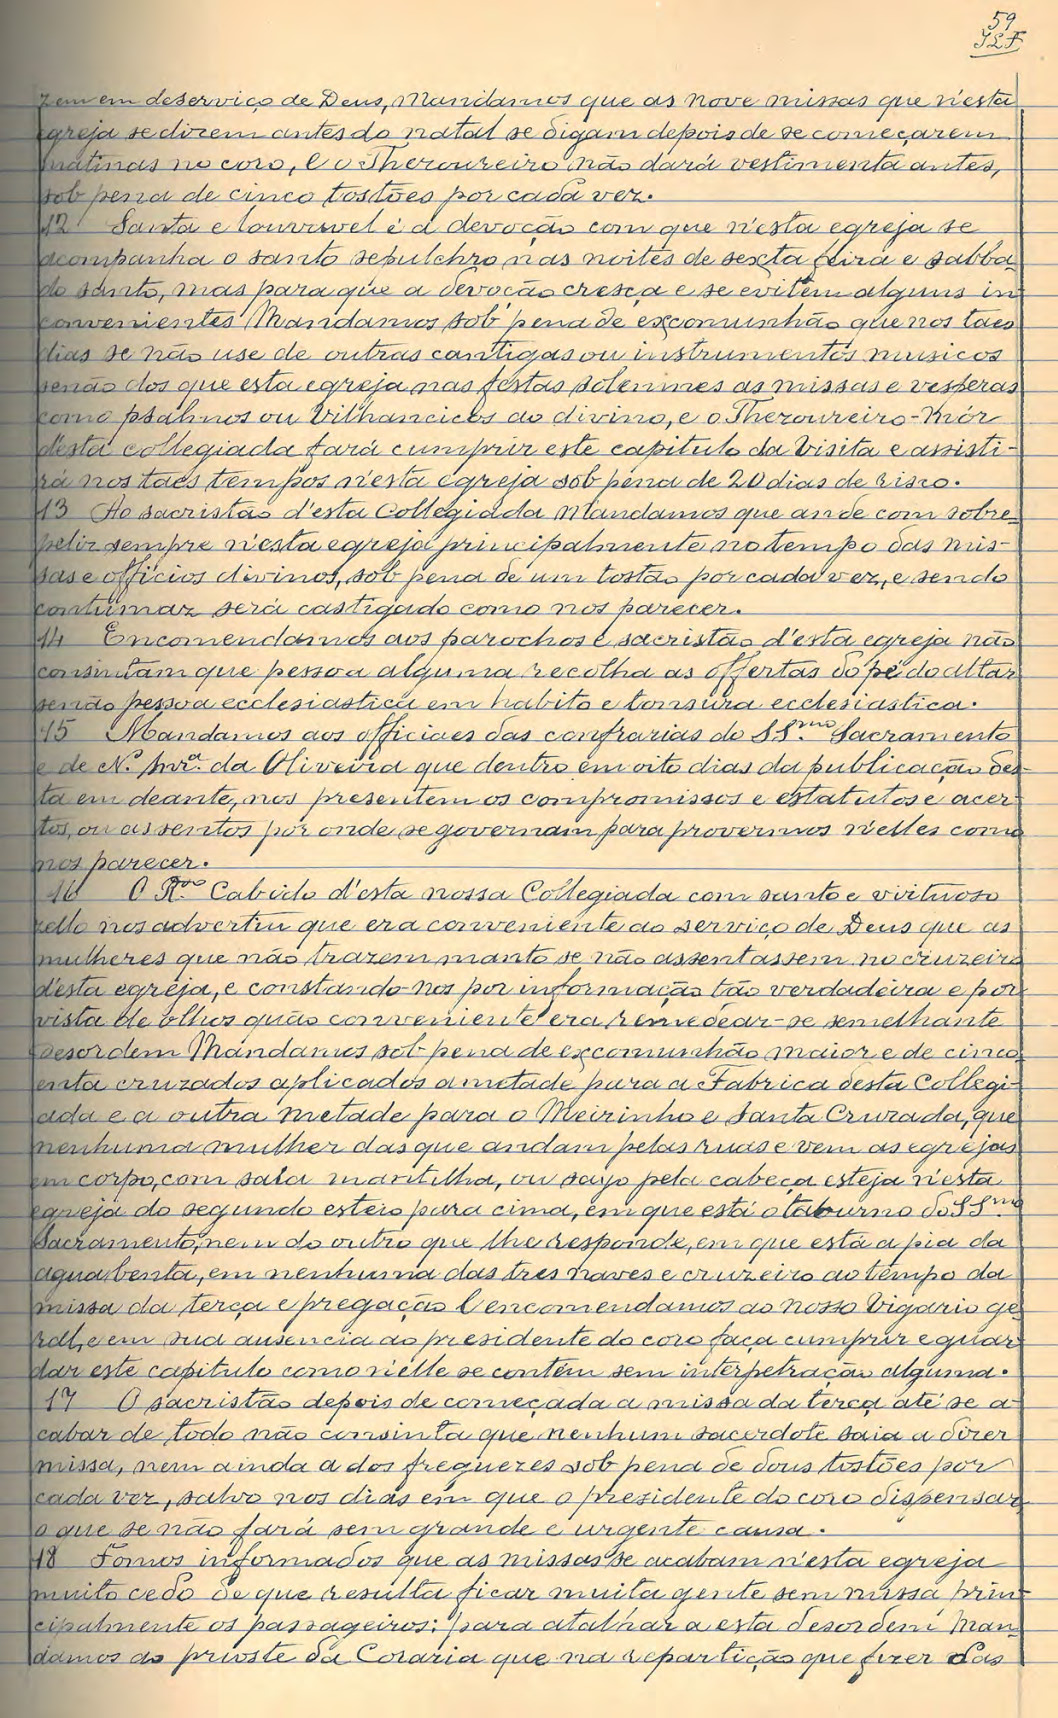 59
JLF
zem em deserviço de Deus, Mandamos que as nove missas que n'esta
egreja se dizem antes do natal se digam depois de se começarem
matinas no coro, e o Thezoureiro não dará vestimenta antes,
sob pena de cinco tostões por cada vez.
12 Santa e louvavel é a devoção com que n'esta egreja se
acompanha o santo sepulchro nas noites de sexta feira e sabba-
do santo, mas para que a devoção cresça e se evitem alguns in
convenientes Mandamos sob pena de excomunhão que nos taes
dias se não use de outras cantigas ou instrumentos musicos
senão dos que esta egreja nas festas solemnes as missas e vesperas
como psalmos ou vilhancicos ao divino, e o Thezoureiro-Mór
d'esta collegiada fará cumprir este capitulo da Visita e assisti-
rá nos taes tempos n'esta egreja sob pena de 20 dias de risco.
13 Ao sacristão d'esta Collegiada Mandamos que ande com sobre-
peliz sempre n'esta egreja principalmente no tempo das mis-
sas e officios divinos, sob pena de um tostão por cada vez, e sendo
contumaz será castigado como nos parecer.
14 Encomendamos aos parochos e sacristão d'esta egreja não
consintam que pessoa alguma recolha as offertas do pé do altar
senão pessoa ecclesiastica em habito e tonsura ecclesiastica.
15 Mandamos aos officiaes das confrarias do SS.mo Sacramento
e de N.ª Snr.ª da Oliveira que dentro em oito dias da publicação des-
ta em deante, nos presentem os compromissos e estatutos e acer-
tos, ou assentos por onde se governam para provermos n'elles como
nos parecer.
16 O R.do Cabido d'esta nossa Collegiada com santo e virtuoso
zello nos advertiu que era conveniente ao serviço de Deus que as
mulheres que não trazem manto se não assentassem no cruzeiro
d'esta egreja, e constando-nos por informação tão verdadeira e por
vista de olhos quão conveniente era remedear-se semelhante
desordem Mandamos sob pena de excomunhão maior e de cinco
enta cruzados aplicados ametade para a Fabrica desta Collegi-
ada e a outra metade para o Meirinho e Santa Cruzada, que
nenhuma mulher das que andam pelas ruas e vem as egrejas
em corpo, com saia mantilha, ou sayo pela cabeça esteja n'esta
egreja do segundo esteio para cima, em que está o taburno do SS.mo
Sacramento, nem do outro que lhe responde, em que está a pia da
agua benta, em nenhuma das tres naves e cruzeiro ao tempo da
missa da terça e pregação E encomendamos ao nosso Vigario ge
ral, e em sua ausencia ao presidente do coro faça cumprir e guar
dar este capitulo como n'elle se contêm sem interpetração alguma.
17 O sacristão depois de começada a missa da terça até se a-
cabar de todo não consinta que nenhum sacerdote saia a dizer
missa, nem ainda a dos freguezes sob pena de dous tostões por
cada vez, salvo nos dias em que o presidente do coro dispensar
o que se não fará sem grande e urgente causa.
18 Fomos informados que as missas se acabam n'esta egreja
muito cedo de que resulta ficar muita gente sem missa prin-
cipalmente os passageiros; para atalhar a esta desordem Man-
damos ao prioste da Coraria que na repartição que fizer das